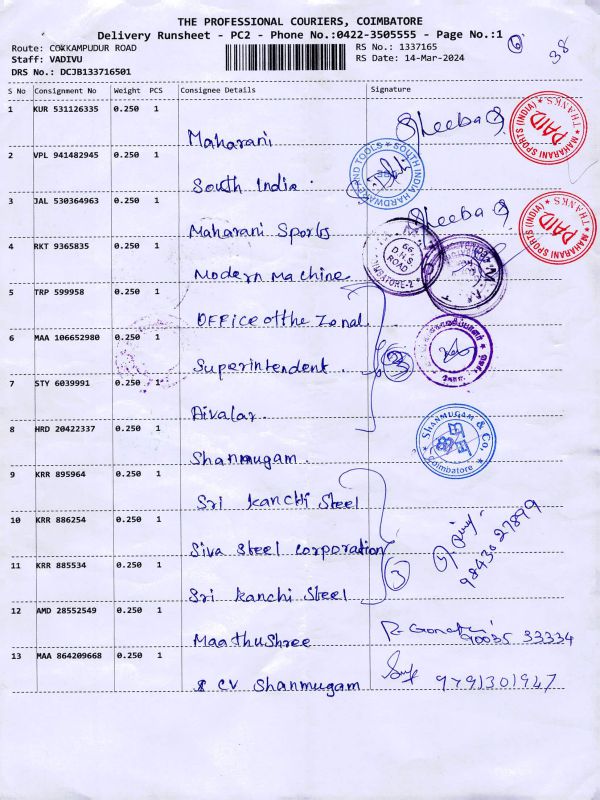 THE PROFESSIONAL COURIERS, COIMBATORE
Delivery Runsheet - PC2 - Phone No.:0422-3505555 - Page No.:1
6
38
Route: COKKAMPUDUR ROAD
RS No.: 1337165
Staff: VADIVU
RS Date: 14-Mar-2024
DRS No.: DCJB133716501
S No Consignment No Weight PCS Consignee Details Signature
1 KUR 531126335 0.250 1
Maharani Sheeba
MAHARANI SPORTS (INDIA) PAID THANKS
2 VPL 941482945 0.250 1
South India
SOUTH INDIA HARDWARE AND TOOLS
3 JAL 530364963 0.250 1
Maharani Sports Sheeba
MAHARANI SPORTS (INDIA) PAID THANKS
4 RKT 9365835 0.250 1
Modern Machine
66, D.H.S. ROAD
5 TRP 599958 0.250 1
Office of the Zonal
6 MAA 106652980 0.250 1
Superintendent
3
7 STY 6039991 0.250 1
Aivalar
8 HRD 20422337 0.250 1
Shanmugam
SHANMUGAM & Co. Coimbatore
9 KRR 895964 0.250 1
Sri Kanchi Steel
10 KRR 886254 0.250 1
Siva Steel Corporation
98430 27899
11 KRR 885534 0.250 1
3
Sri Kanchi Steel
12 AMD 28552549 0.250 1
Maathushree
90035 33334
13 MAA 864209668 0.250 1
S CV Shanmugam
9791301947